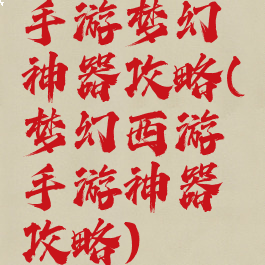 手游梦幻
神器攻略(
梦幻西游
手游神器
攻略)